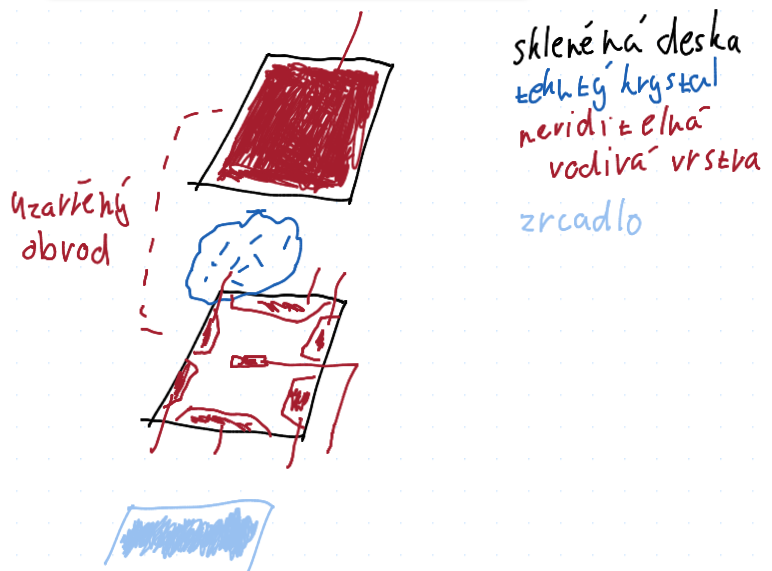 skleněná deska
tekutý krystal
neviditelná
vodivá vrstva
zrcadlo
uzavřený
obvod